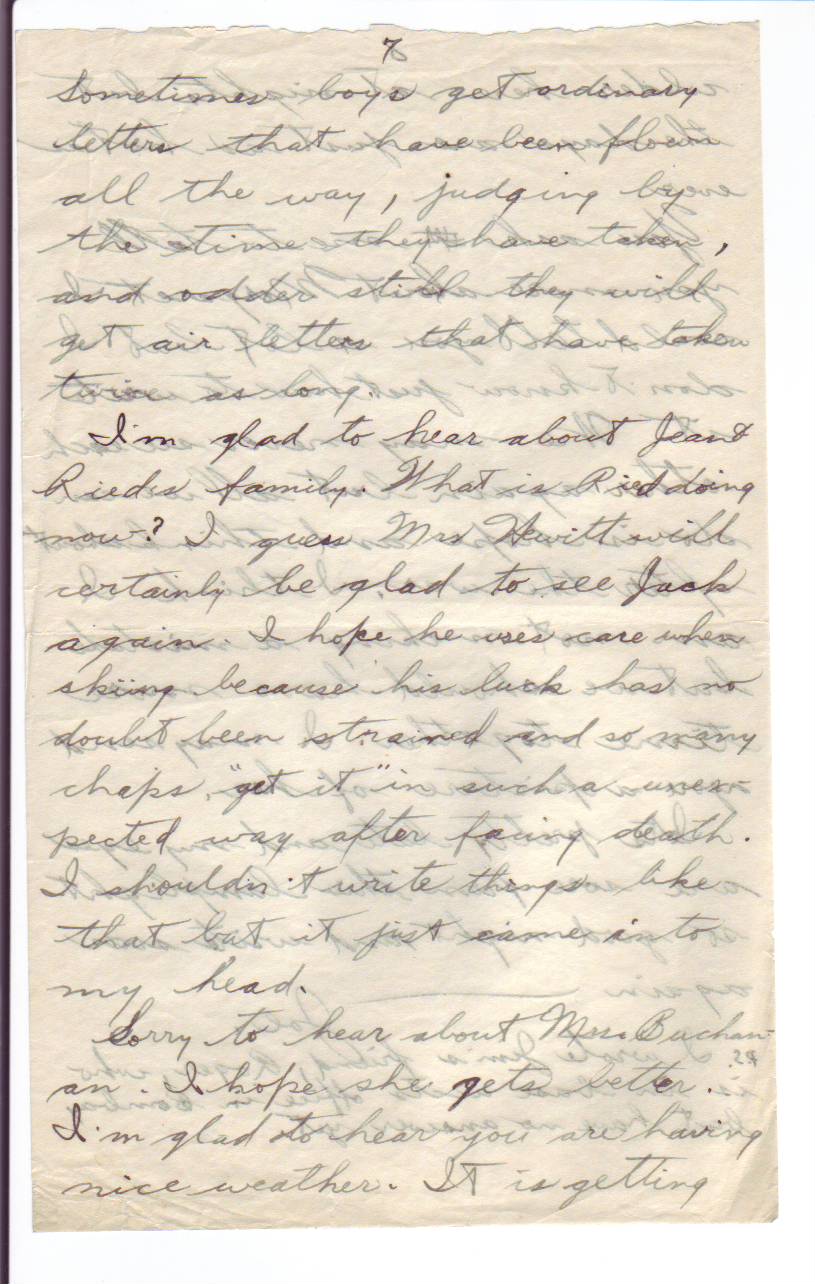 7
Sometimes boys get ordinary
letters that have been flown
all the way, judging by
the time they have taken,
and odder still they will
get air letters that have taken
twice as long.
I'm glad to hear about Jean &
Rieds family. What is Ried doing
now? I guess Mrs Hewitt will
certainly be glad to see Jack
again. I hope he uses care when
skiing because his luck has no
doubt been strained and so many
chaps, "get it" in such a unex-
pected way after facing death.
I shouldn't write things like
that but it just came in to
my head.
Sorry to hear about Mrs. Buchan-
an. I hope she gets better.
I'm glad to hear you are having
nice weather. It is getting